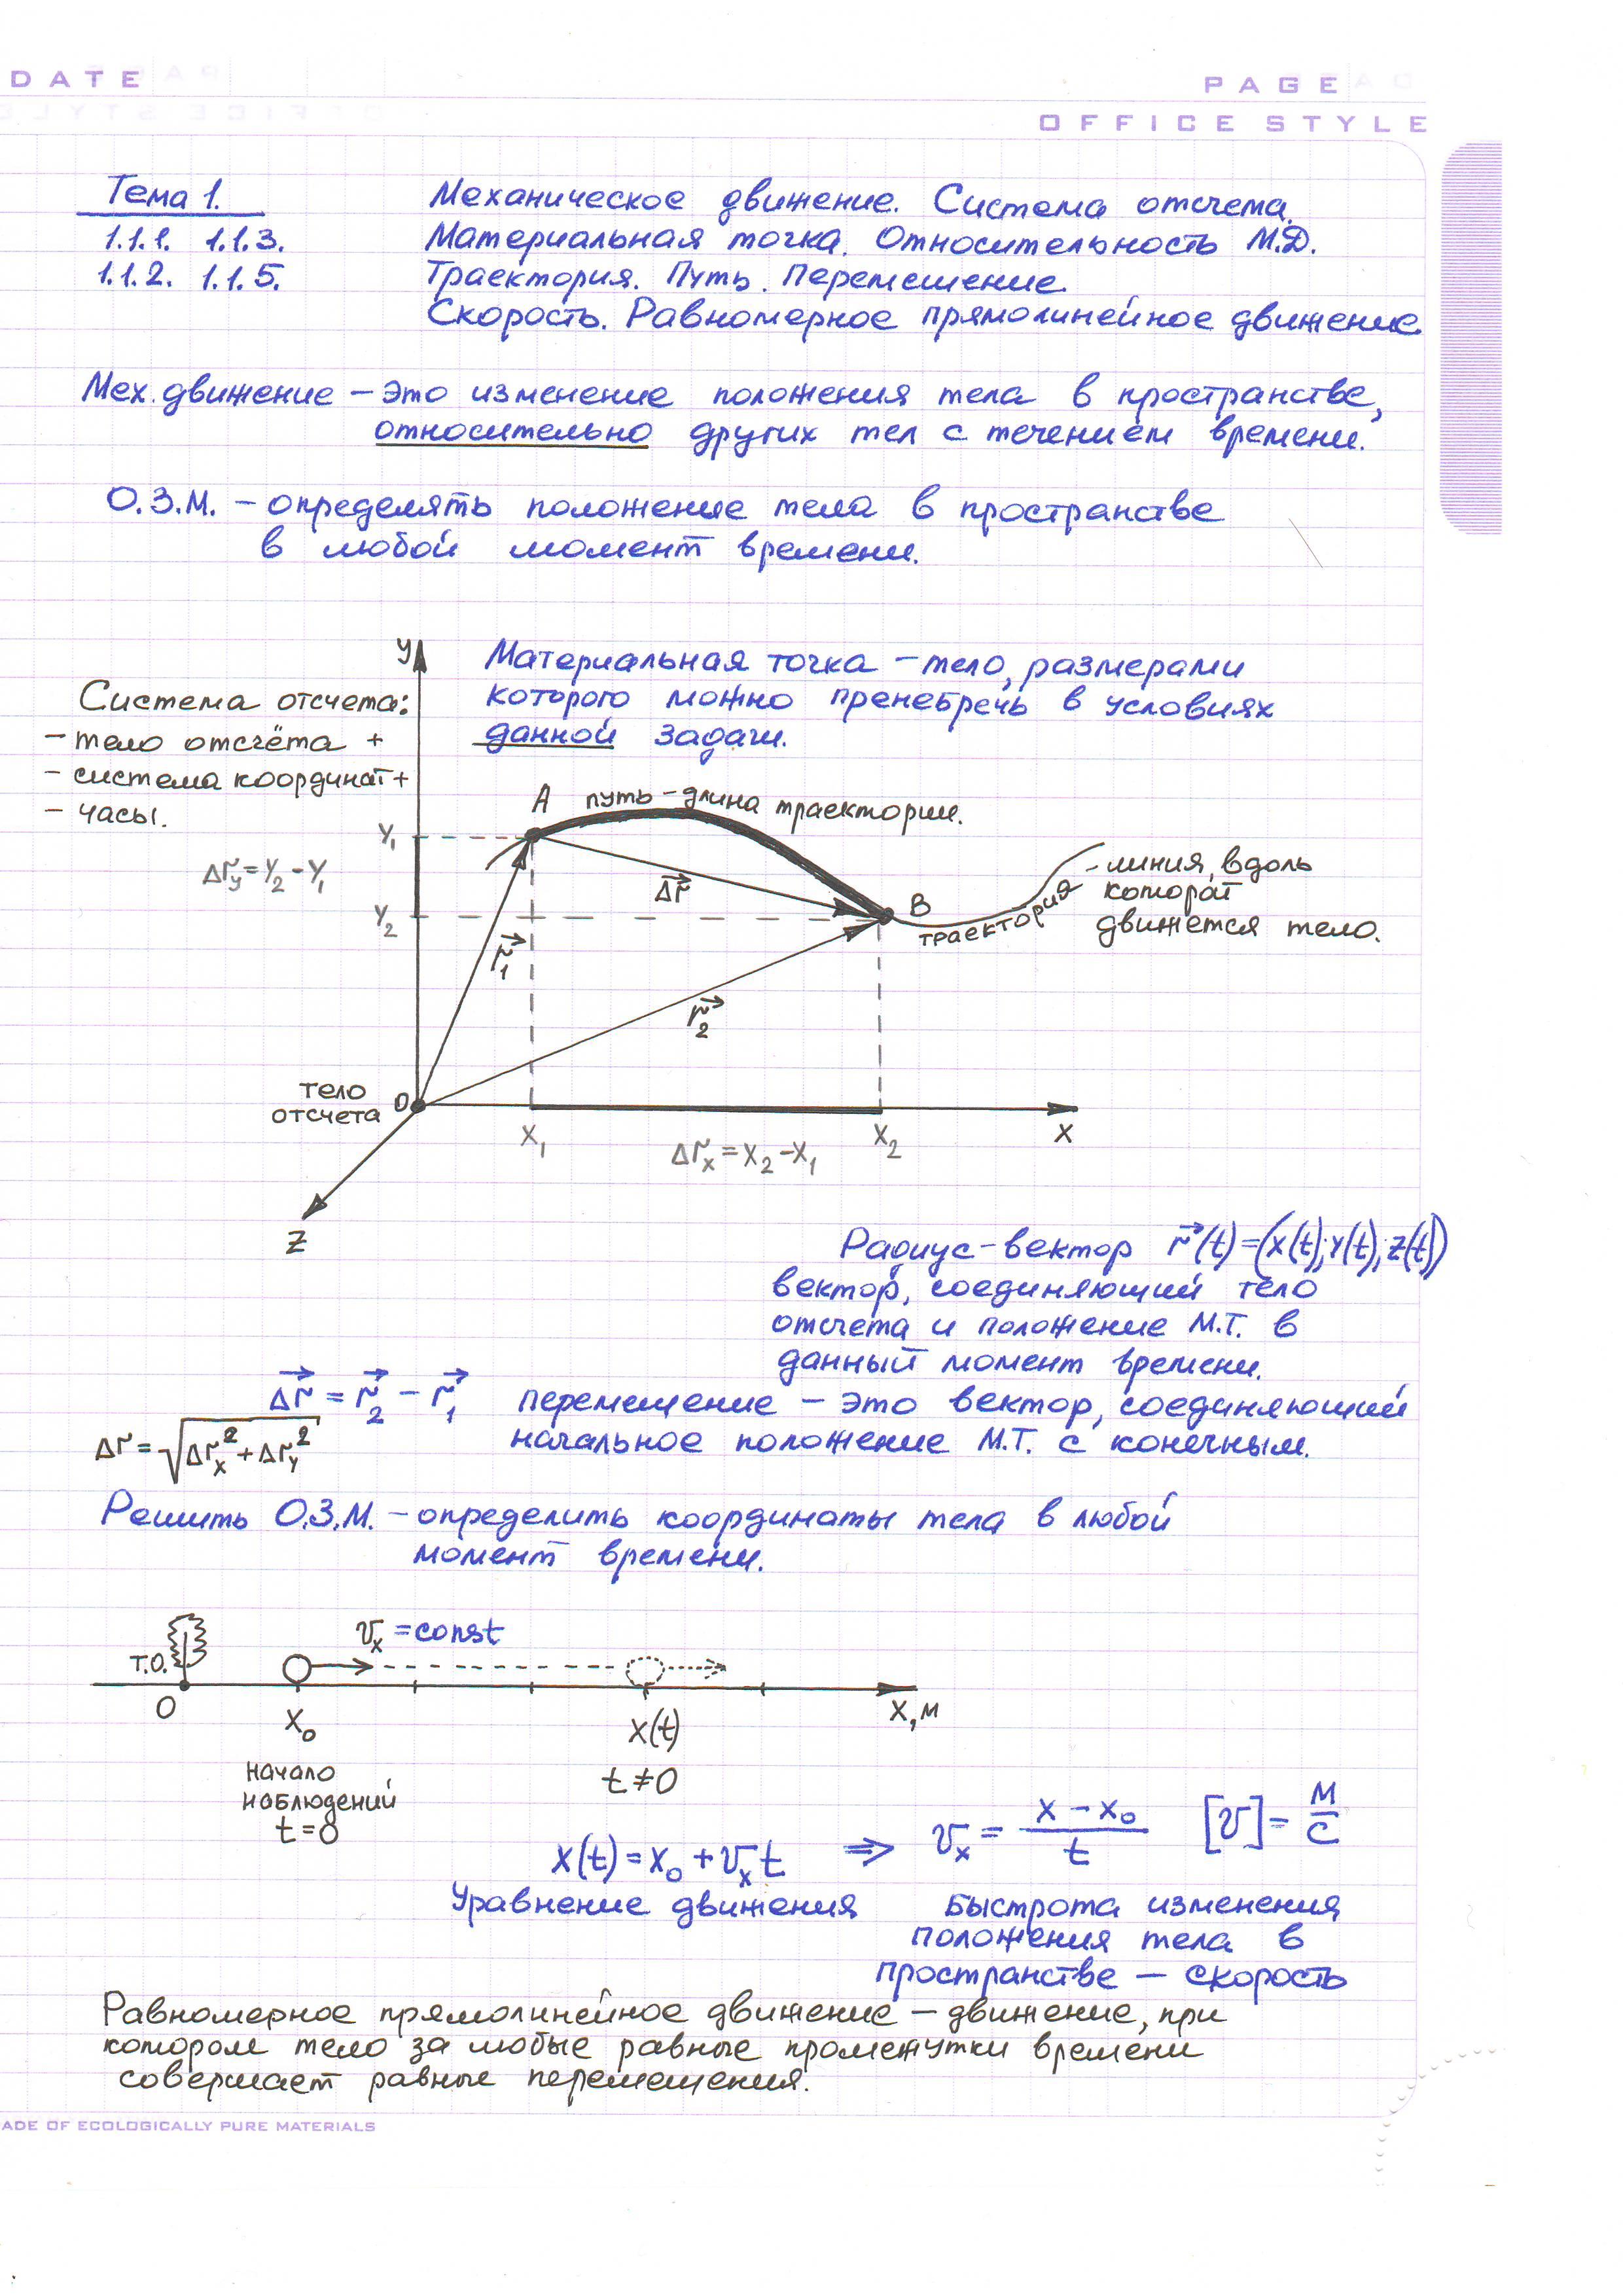 DATE
PAGE
OFFICE STYLE
Тема 1.
1.1.1. 1.1.3.
1.1.2. 1.1.5.
Механическое движение. Система отсчета.
Материальная точка. Относительность М.Д.
Траектория. Путь. Перемещение.
Скорость. Равномерное прямолинейное движение.
Мех. движение – это изменение положения тела в пространстве,
относительно других тел с течением времени.
О.З.М. – определять положение тела в пространстве
в любой момент времени.
Y
Материальная точка – тело, размерами
которого можно пренебречь в условиях
данной задачи.
Система отсчета:
– тело отсчёта +
– система координат +
– часы.
A путь – длина траектории.
Y₁
Δr_y = Y₂ – Y₁
Δr⃗
Y₂
B
траектория
– линия, вдоль
которой
движется тело.
r⃗₁
r⃗₂
тело
отсчета
O
X₁
X₂
X
Δr_x = X₂ – X₁
Z
Радиус-вектор r⃗(t) = (X(t); Y(t); Z(t))
вектор, соединяющий тело
отсчета и положение М.Т. в
данный момент времени.
Δr⃗ = r⃗₂ – r⃗₁
перемещение – это вектор, соединяющий
начальное положение М.Т. с конечным.
Δr = √(Δr_x² + Δr_y²)
Решить О.З.М. – определить координаты тела в любой
момент времени.
v_x = const
Т.О.
O
X₀
X(t)
X, м
начало
наблюдений
t = 0
t ≠ 0
X(t) = X₀ + v_x t ⇒ v_x = (X – X₀)/t [v] = м/с
Уравнение движения
Быстрота изменения
положения тела в
пространстве – скорость
Равномерное прямолинейное движение – движение, при
котором тело за любые равные промежутки времени
совершает равные перемещения.
ADE OF ECOLOGICALLY PURE MATERIALS